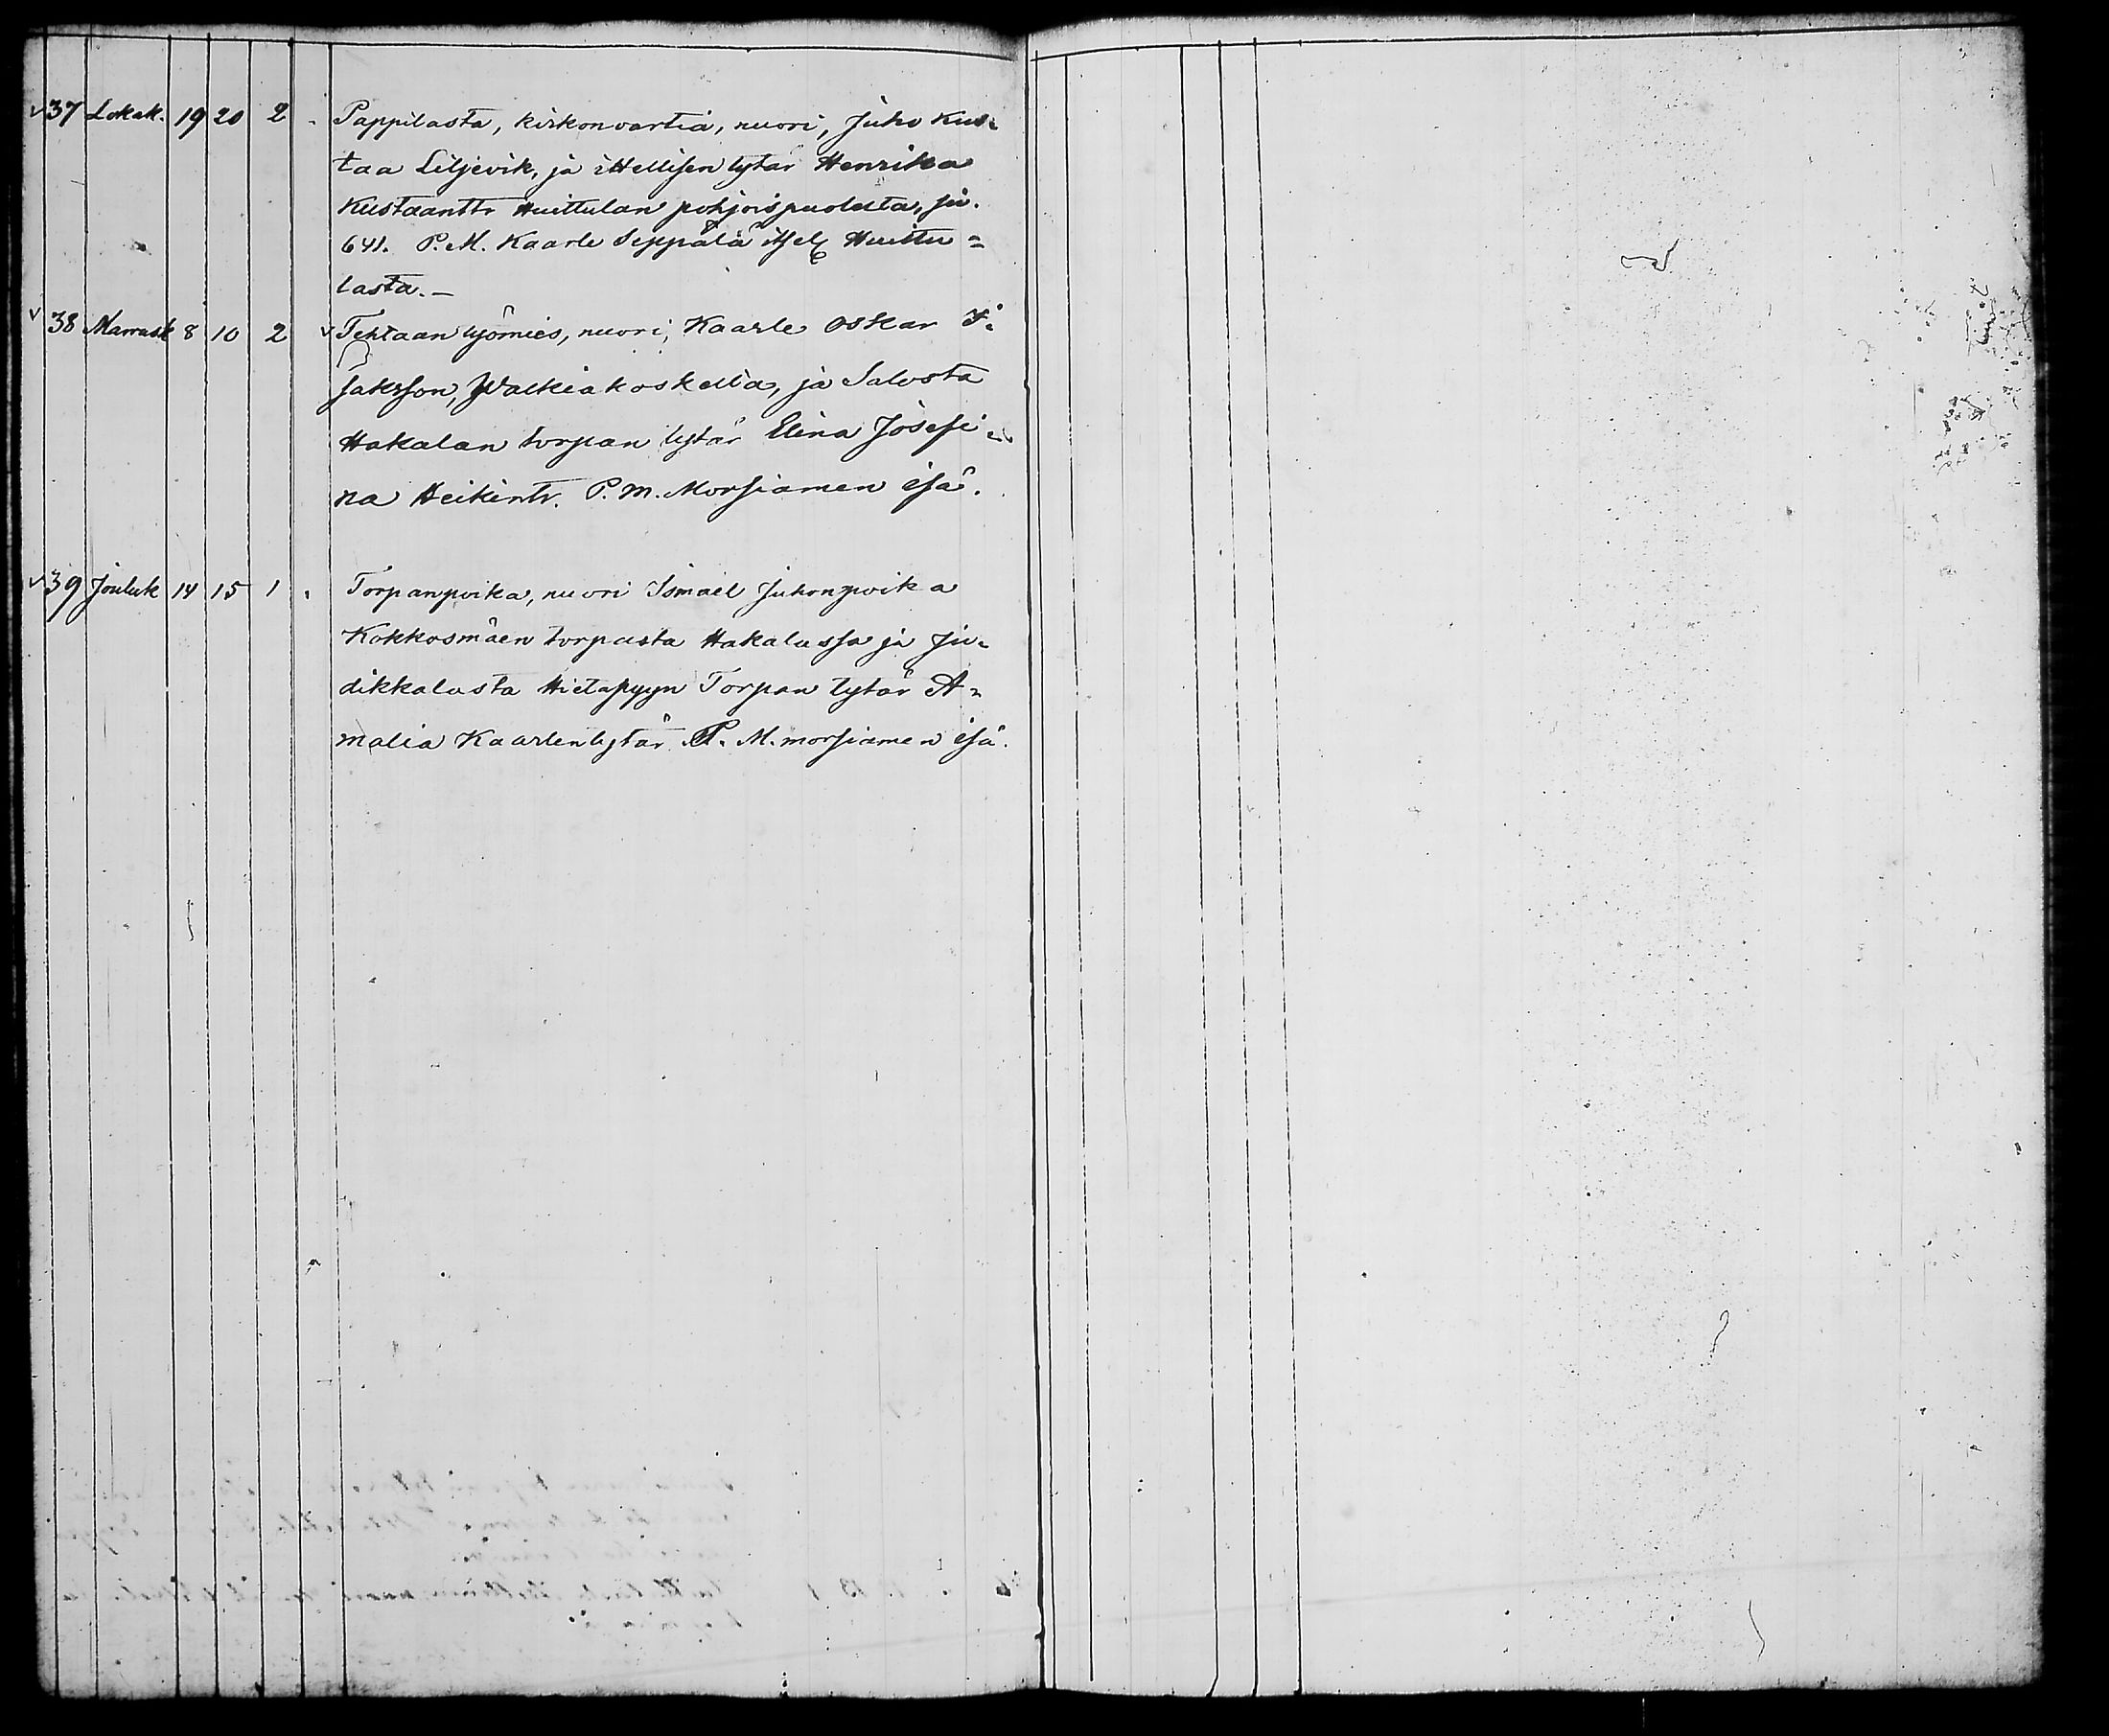 √ 37 Lokak. 19 20 2 Pappilasta, kirkonvartia, nuori, Juho Kus-
taa Liljevik, ja ittellisen tytär Henrika
Kustaanttr Huittulan pohjoispuolesta, siv.
641. P. M. Kaarle Seppälä itsel. Huittu=
lasta.—
√ 38 Marrask 8 10 2 √ Tehtaan työmies, nuori, Kaarle Oskar I-
saksson, Walkiakoskella, ja Salosta
Hakalan torpan tytär Elina Josefi-
na Heikintr. P. M. Morsiamen isä.
√ 39 Jouluk 14 15 1 Torpanpoika, nuori Ismael Juhonpoika
Kokkosmäen torpasta Hakalassa ja Ju-
dikkalasta Hietapyyn Torpan tytär A-
malia Kaarlentytär P. M. morsiamen isä.